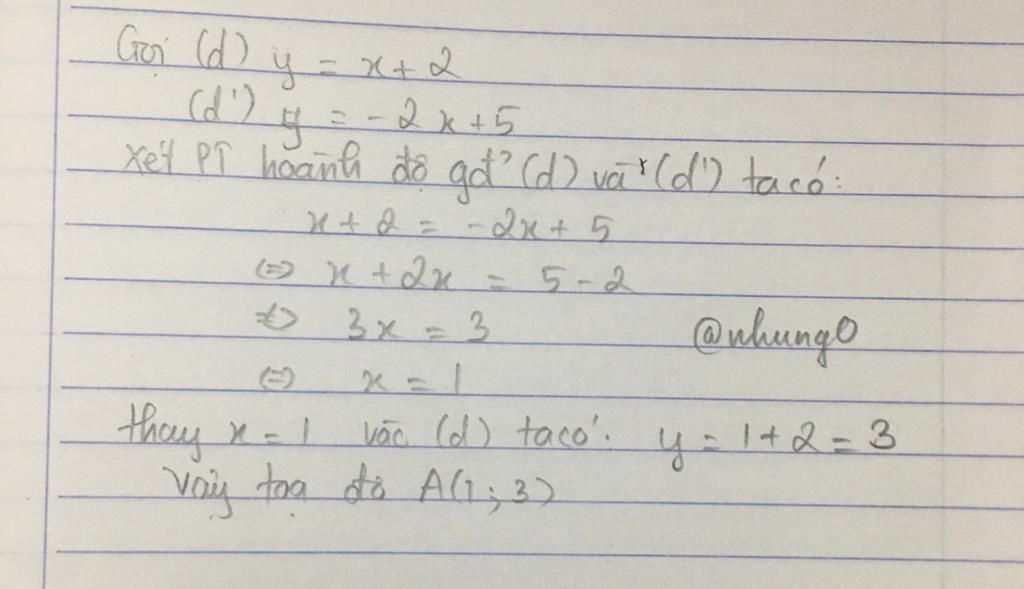 Gọi (d) y = x + 2
(d') y = -2x + 5
xét PT hoành độ gđ² (d) và (d') ta có:
x + 2 = -2x + 5
⇔ x + 2x = 5 - 2
⇔ 3x = 3
@nhung0
⇔ x = 1
thay x = 1 vào (d) ta có: y = 1 + 2 = 3
Vậy toạ độ A(1; 3)